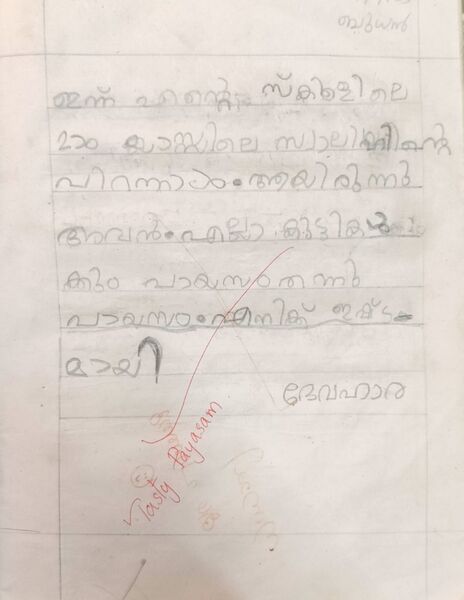 ബുധൻ
ഇന്ന് എന്റെ സ്കൂളിലെ
2ാം ക്ലാസ്സിലെ സ്വാലിഹിന്റെ
പിറന്നാളം ആയിരുന്നു
അവൻ എല്ലാ കുട്ടികൾ
ക്കും പായസം തന്നു
പായസം എനിക്ക് ഇഷ്ട
മായി
ദേവഹാര
v. Tasty Payasam